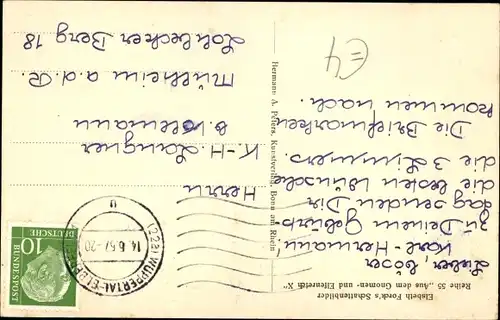 Elsbeth Forck's Schattenbilder
Reihe 55 „Aus dem Gnomen- und Elfenreich X"
Lieber, böser
Karl-Hermann,
zu Deinem Geburts
tag senden Dir
die besten Wünsche
die 3 Limmers.
Die Briefmarken
kommen nach.
Hermann A. Peters, Kunstverlag, Bonn am Rhein
£4
(22a) WUPPERTAL-ELBERFELD
14.6.57.-20
u
10
DEUTSCHE
BUNDESPOST
Herrn
K-H. Langner
b.
Mülheim a.d.R.
Lohbecker Berg 18